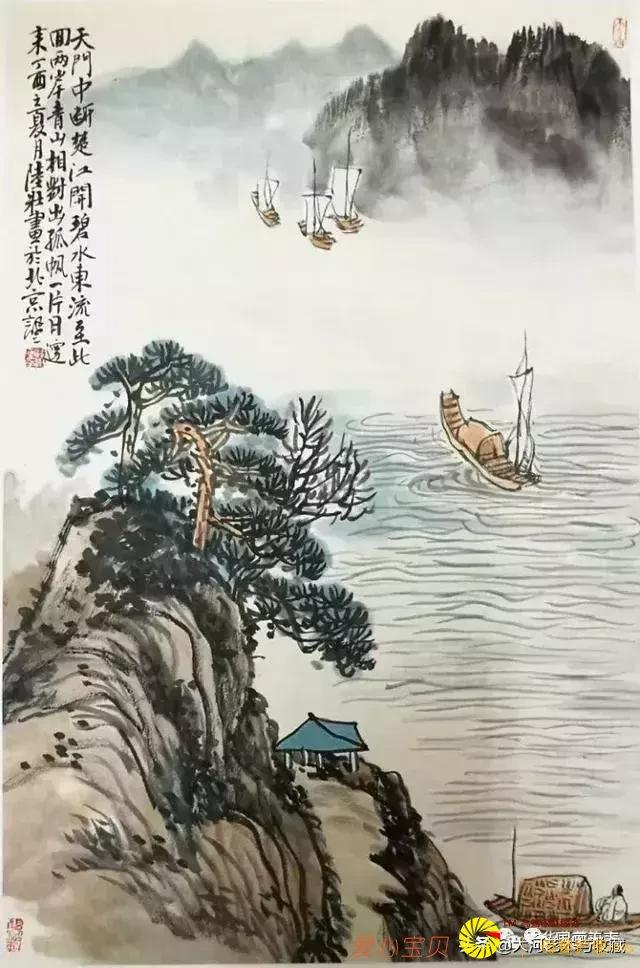 天門中断楚江開碧水東流至此
回兩岸青山相對出孤帆一片日邊
来丁酉之夏月陸壮畫於北京
爱心宝贝
@天河艺术与收藏